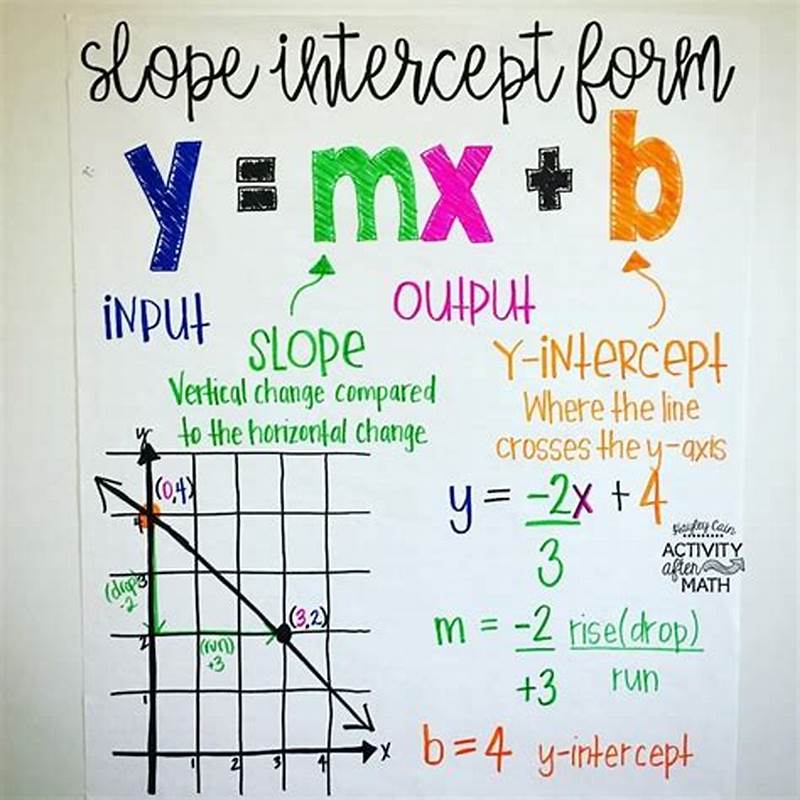 slope intercept form
y = mx + b
INPUT
OUTPUT
SLOPE
Vertical change compared
to the horizontal change
Y-INTERCEPT
Where the line
crosses the y-axis
y
(0,4)
4
3
(drop)
-2
2
(run)
+3
(3,2)
1
1 2 3 4
x
y = -2x + 4
3
Hayley Cain
ACTIVITY
after
MATH
m = -2 rise(drop)
+3 run
b = 4 y-intercept